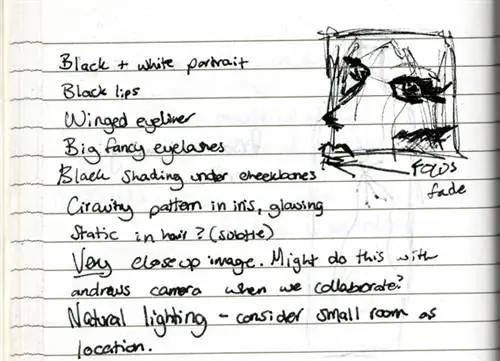 Black + white portrait
Black lips
Winged eyeliner
Big fancy eyelashes
Black shading under cheekbones
Circuity pattern in iris, glowing
Static in hair? (subtle)
Very closeup image. Might do this with
andrews camera when we collaborate?
Natural lighting - consider small room as
location.
FOCUS
fade